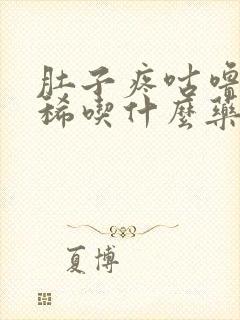 肚子疼咕噜
稀喫什麼藥
夏博